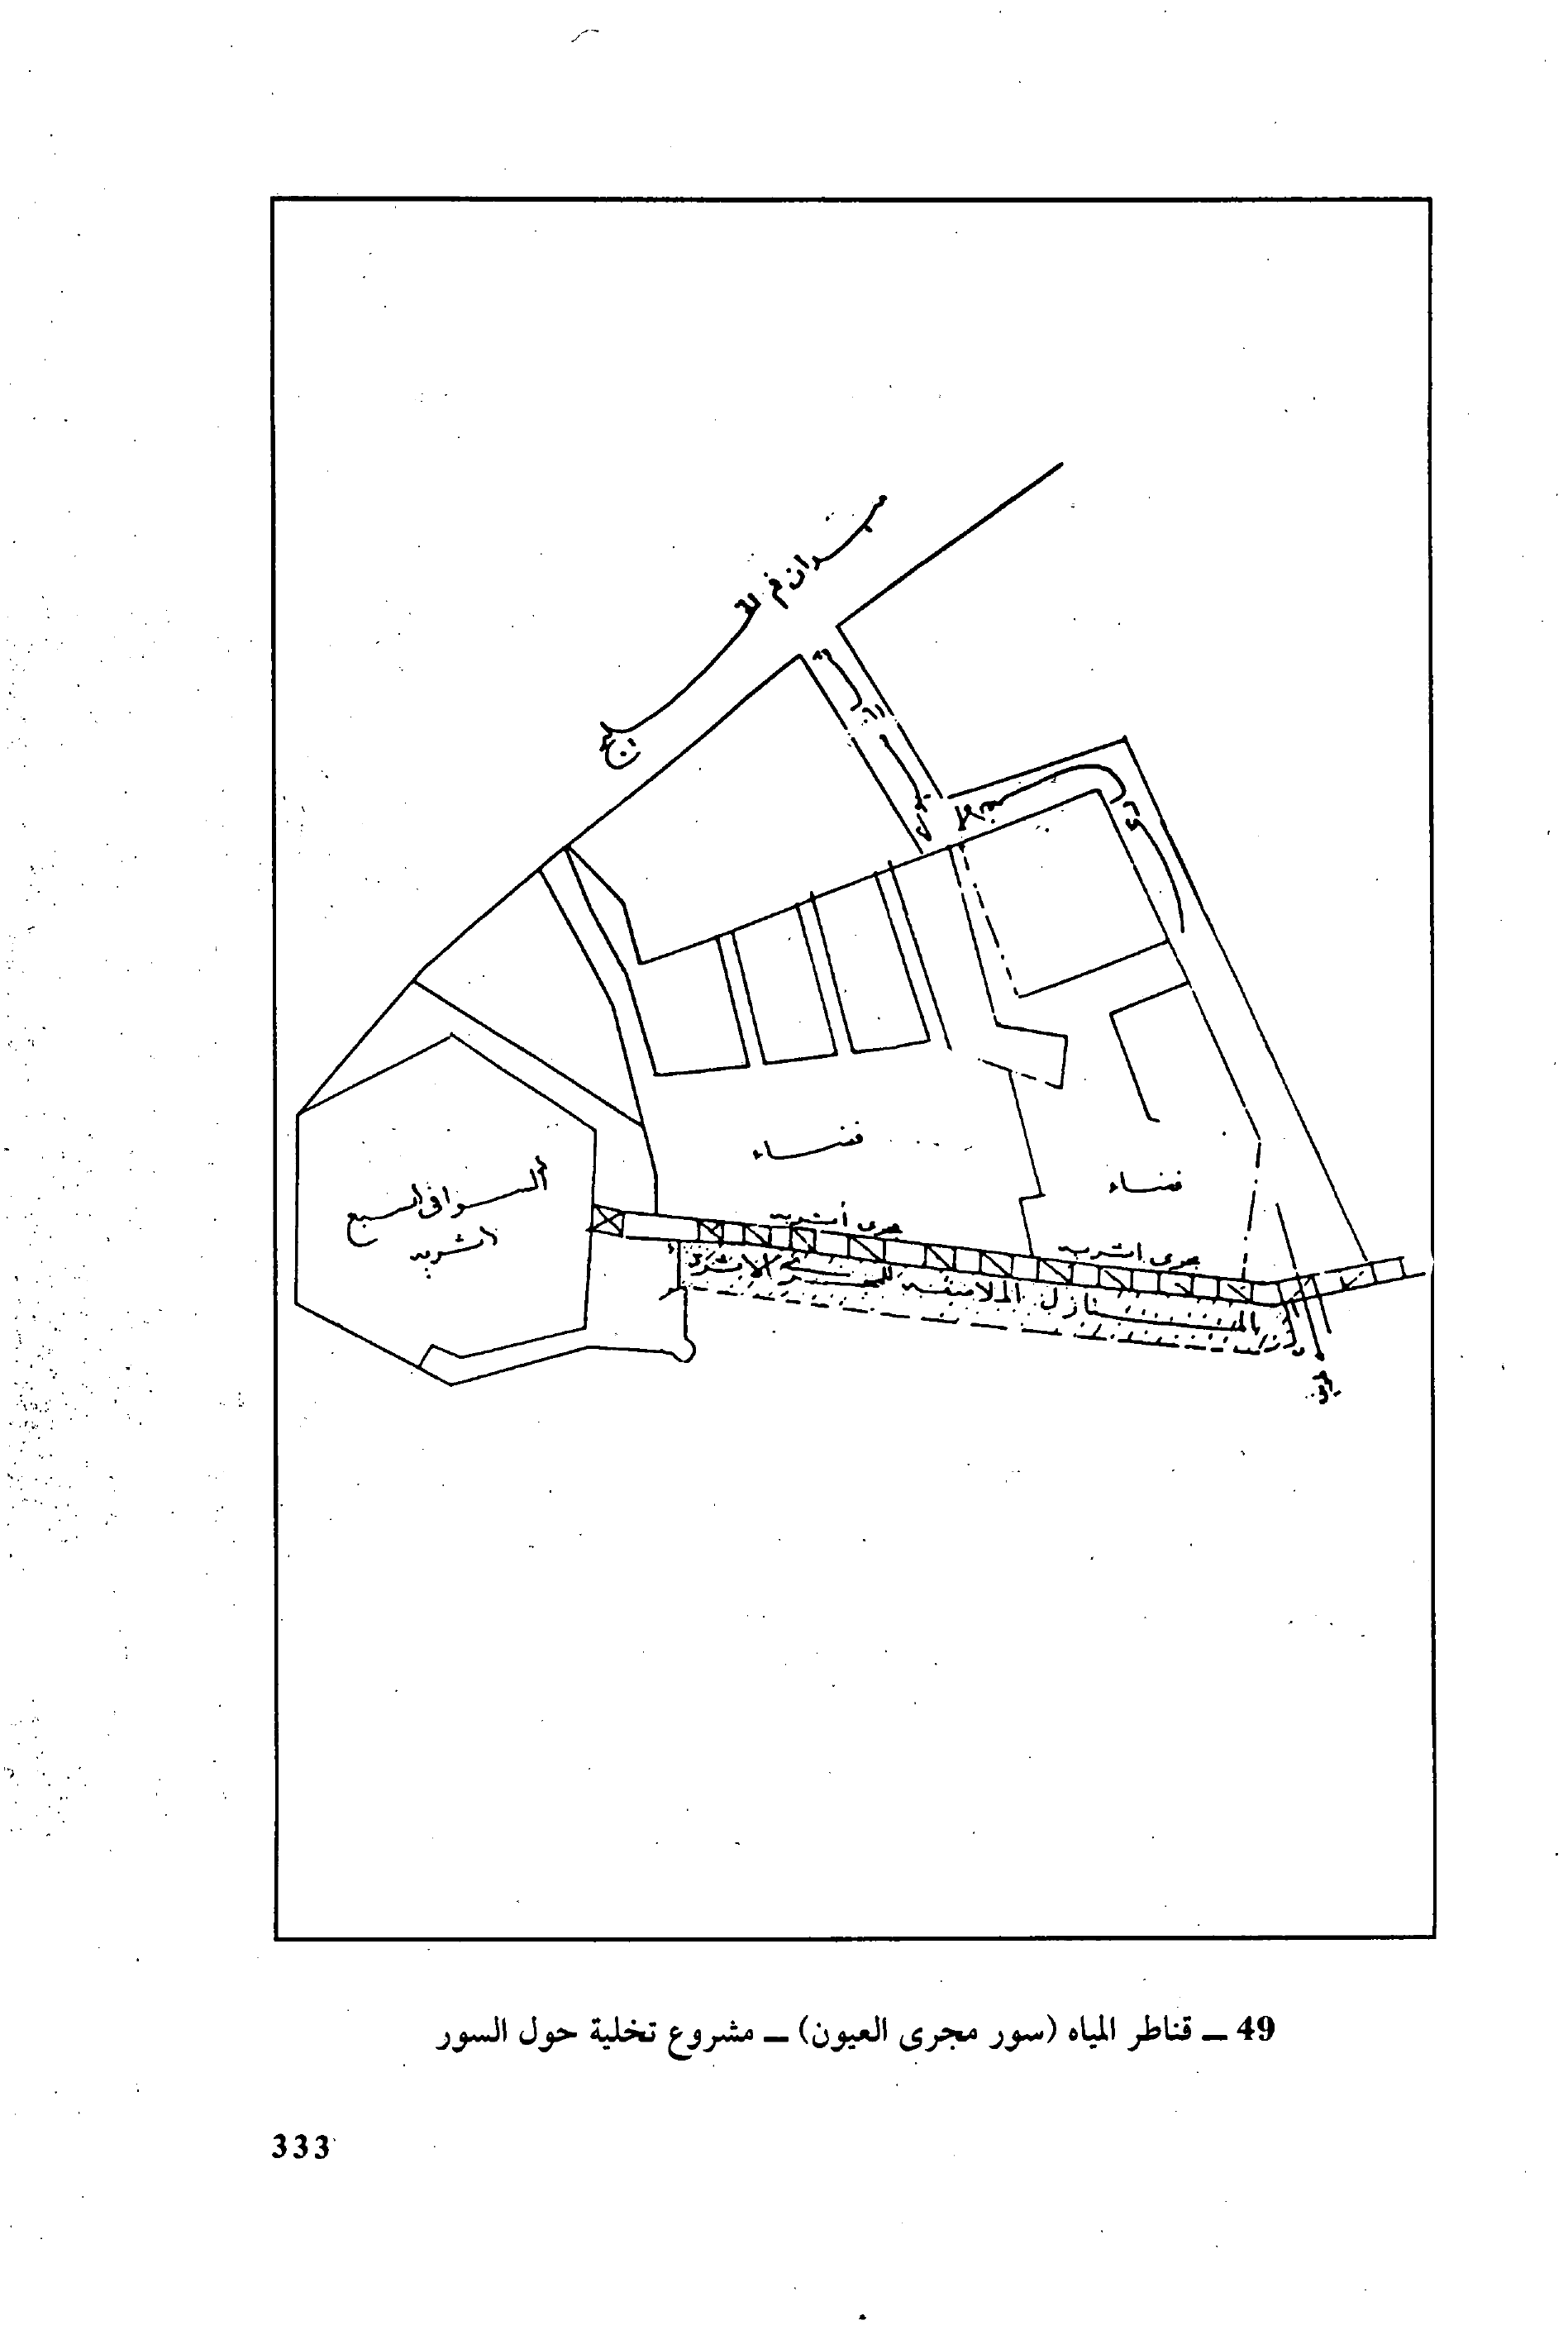 ميدان فم الخليج
فضاء
فضاء
السواقى السبع
الأثرية
مجرى أثرية
مجرى أثرية
المنازل الملاصقة للسور الأثرى
49 ــ قناطر المياه (سور مجرى العيون) ــ مشروع تخلية حول السور
333